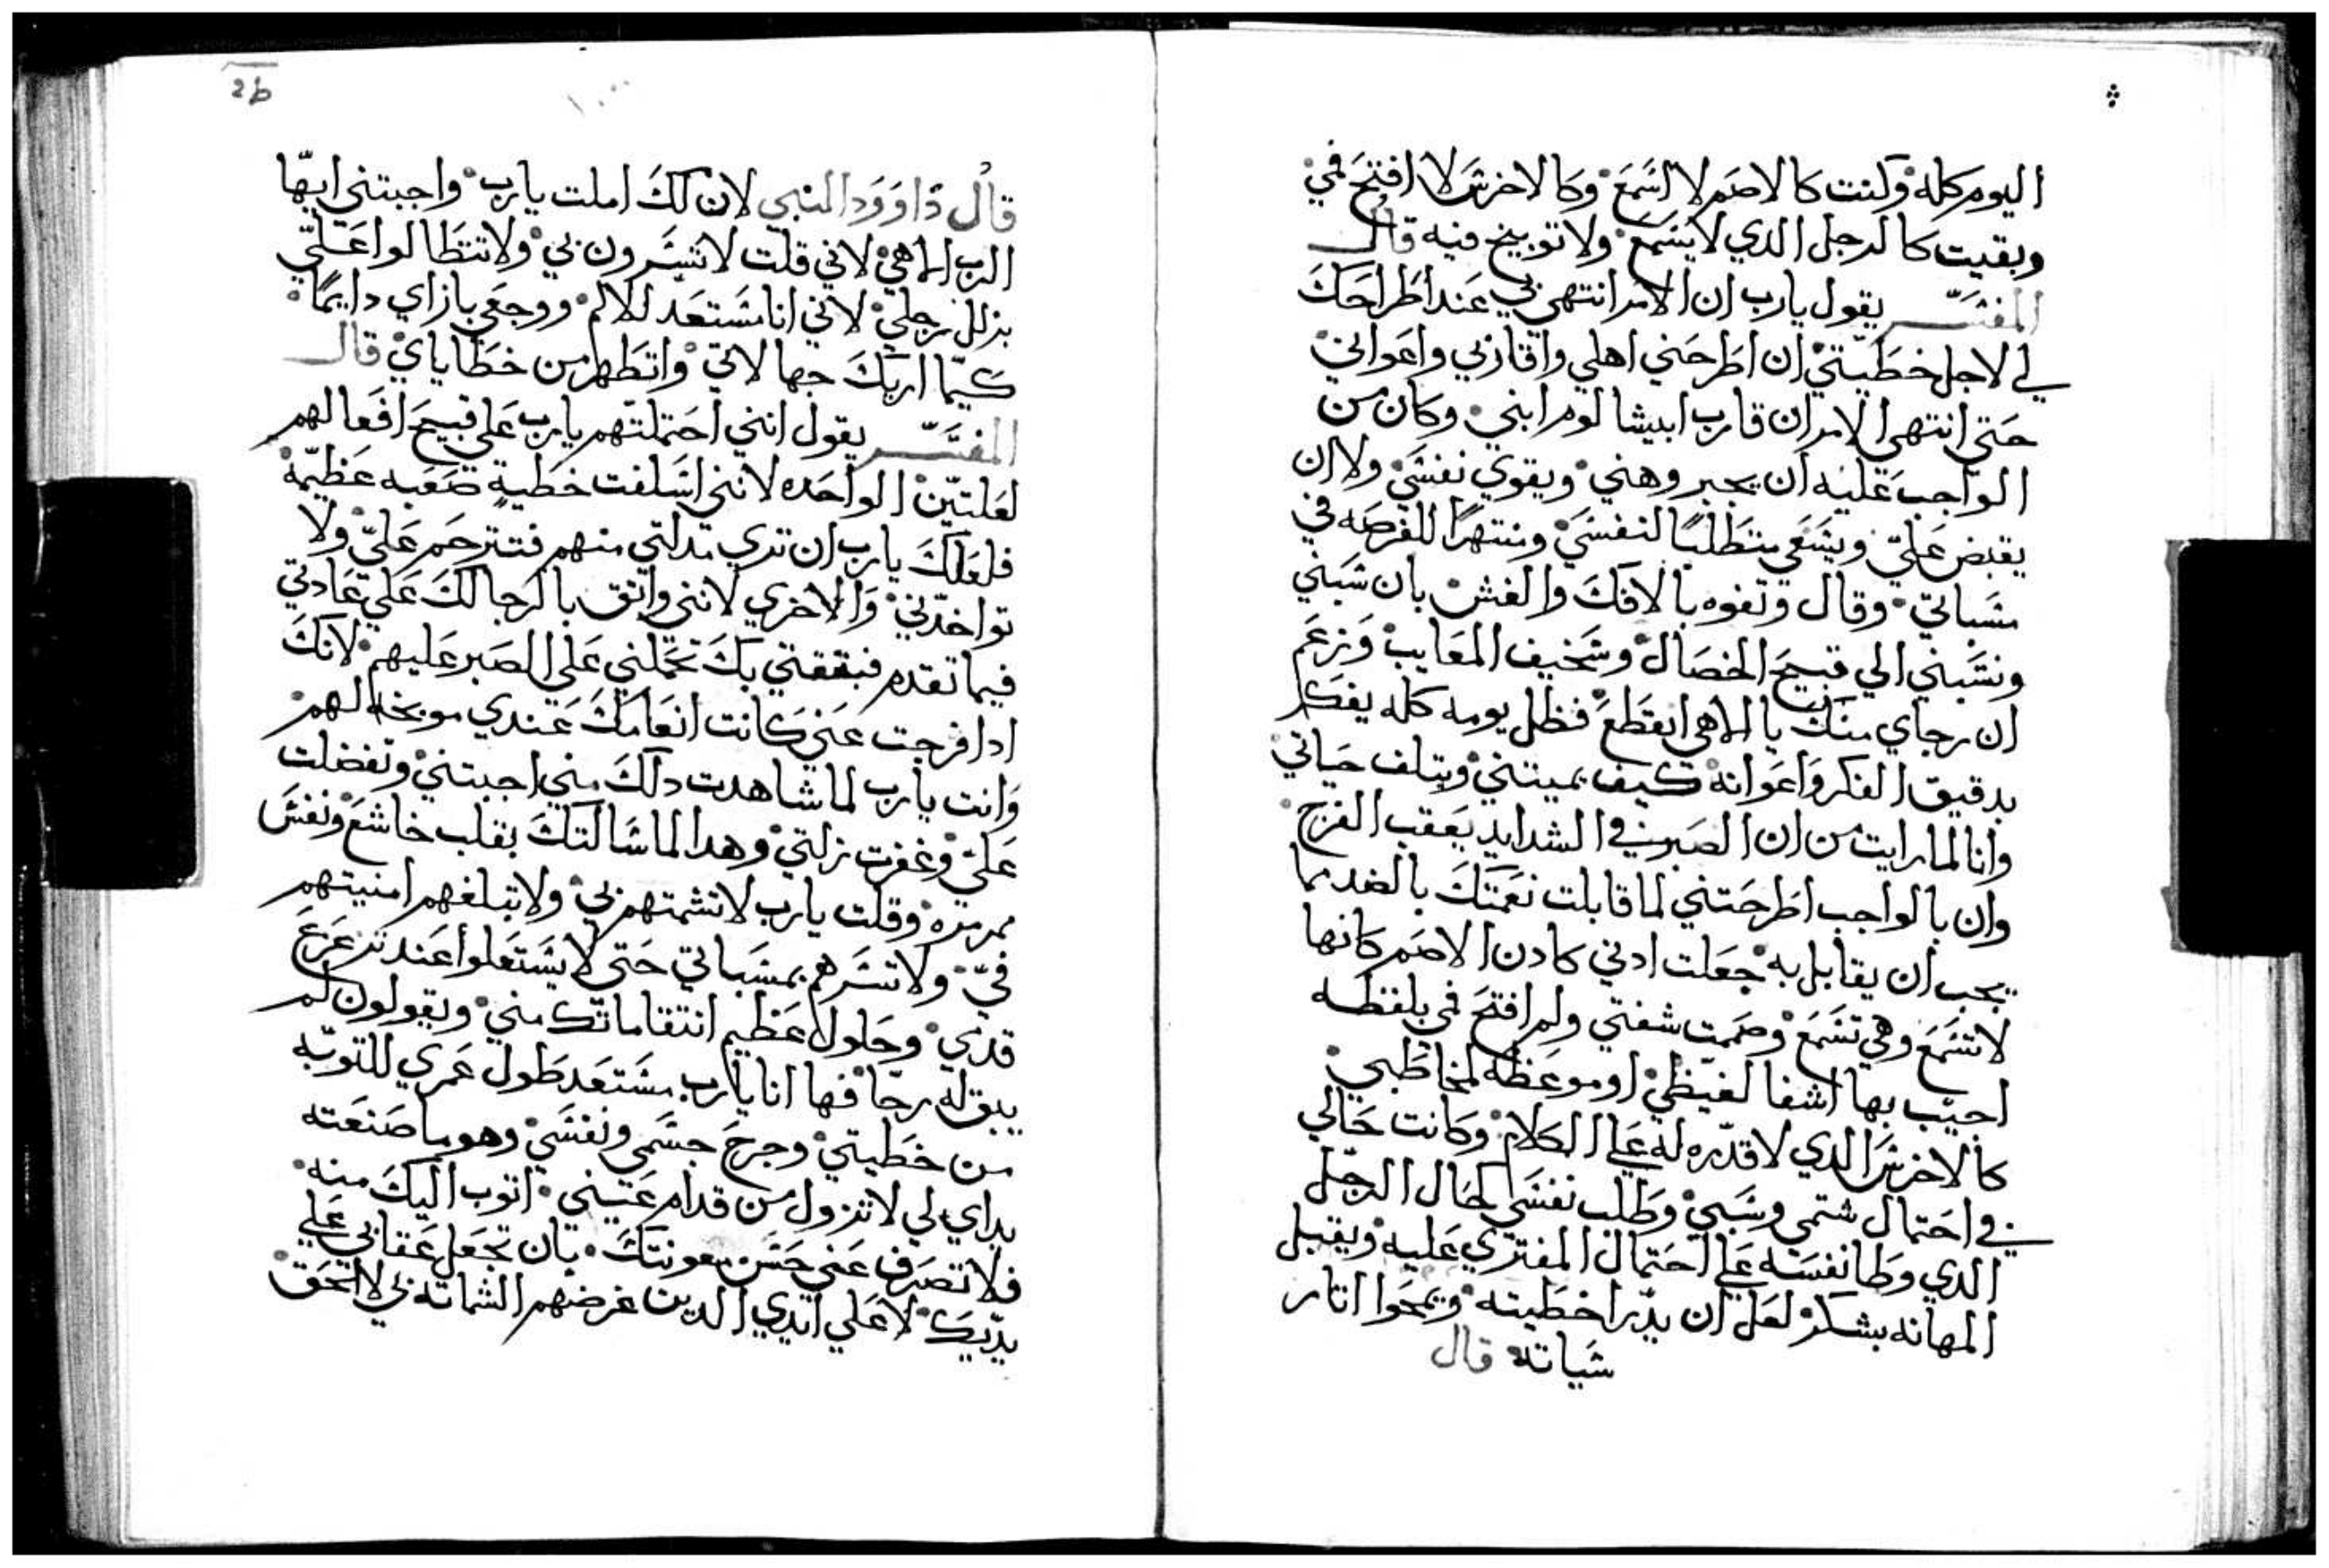 اليوم كله وكنت كالاصم لا اسمع وكالاخرش لا افتح فمي
وبقيت كالرجل الدي لا يسمع ولا توبيخ فيه قال
المفسر يقول يارب ان الامر انتهى بي عند اطراحك
لي لاجل خطيتي ان اطرحني اهلي واقاربي واعواني
حتي انتهى الامر ان قارب ابيشالوم ابني وكان من
الواجب عليه ان يجبر وهني ويقوي نفسي ولا ان
يقبض علي ويسعي متطلبًا لنفسي ومنتهزًا للفرصه في
مسباتي وقال وتفوه بالافك والغش بان سبني
ونسبني الي قبيح الخصال وسخيف المعايب وزعم
ان رجاي منك يا الاهي انقطع فظل يومه كله يفكر
بدقيق الفكر واعوانه كيف يميتني ويتلف حياتي
وانا لما رايت من ان الصبر في الشدايد يعقب الفرج
وان بالواجب اطرحتني لما قابلت نعمتك بالضد مما
يجب ان يقابل به جعلت ادني كادن الاصم كانها
لا تسمع وهي تسمع وصمت شفتي ولم افتح فمي بلفظه
اجيب بها اشفا لغيظي او موعظه لمخاطبي
كالاخرش الدي لا قدره له علي الكلام وكانت حالي
في احتمال شتمي وسبي وطلب نفسي كحال الرجل
الدي وطا نفسه علي احتمال المفتري عليه ويقبل
المهانه بشكر لعل ان يدرا خطيته ويمحوا اتار
سياته قال
26
قال داوود النبي لان لك املت يارب واجبتني ايها
الرب الاهي لاني قلت لا تسرون بي ولا تتطالوا علي
بزلل رجلي لاني انا مستعد للالم ووجعي بازاي دايمًا
كيما اريك جهالاتي واتطهر من خطاياي قال
المفسر يقول انني احتملتهم يارب علي قبيح افعالهم
لعلتين الواحده لانني اسلفت خطية صعبه عظيمة
فلعلك يارب ان تري مدلتي منهم فتترحم علي ولا
تواخدني والاخري لانني واثق بالرجا لك علي عادتي
فيما تقدم فبثقتي بك تحملني علي الصبر عليهم لانك
ادا فرجت عني كانت انعامك عندي موبخه لهم
وانت يارب لما شاهدت دلك مني اجبتني وتفضلت
علي وغفرت زلتي وهدا لما سالتك بقلب خاشع ونفس
مرمره وقلت يارب لا تشمتهم بي ولا تبلغهم امنيتهم
في ولا تسرهم بمسباتي حتي لا يستعلوا عند تزعزع
قدمي وحلول عظيم انتقاماتك مني ويقولون لم
يبق له رجا فها انا يارب مستعد طول عمري للتوبه
من خطيتي وجرح جسمي ونفسي وهو ما صنعته
بداي لي لا تزول من قدام عيني اتوب اليك منه
فلا تصرف عني حسن معونتك بان تجعل عقابي علي
يديك لا علي ايدي الدين غرضهم الشماته بي لا لحق